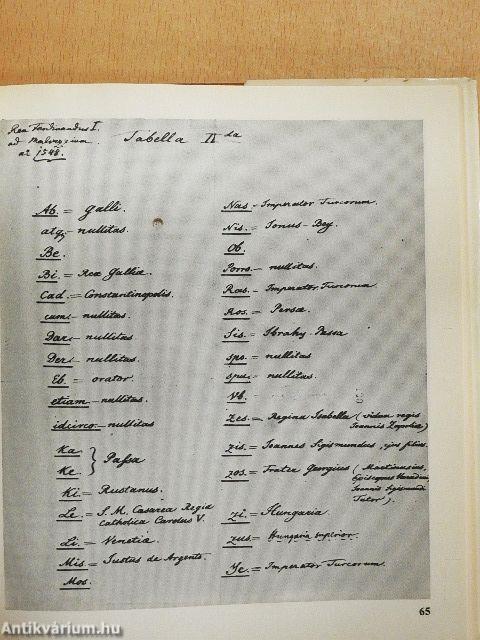 Rex Ferdinandus I.
ad Malvezium
a: 1548.
Tabella II da
Ab. = Galli.
atq; - nullitas.
Be.
Bi = Rex Galliæ.
Cad. = Constantinopolis.
cum - nullitas.
Dar - nullitas.
Der - nullitas.
Eb. = orator.
etiam - nullitas.
idcirco - nullitas
Ka
Ke } Passa
Ki = Rustanus.
Le = S. M. Cæsarea Regia
catholica Carolus V.
Li = Venetia.
Mis = Iustus de Argento.
Mos.
Nas - Imperator Turcorum.
Nis = Ionus-Bey.
Ob
Porro - nullitas.
Ras - Imperator Turcorum
Ros = Persa.
Sis = Ibrahy-Passa
spo = nullitas
spu = nullitas.
Vb. -
zes = Regina Isabella (vidua regis
Ioannis Zapolyæ)
zis = Ioannes Sigismundus, ejus filius.
zos = Frater Georgius (Martinusius,
Episcopus
Ioannis Sigismundi
Tutor).
zi = Hungaria
zus = Hungaria superior.
Ye = Imperator Turcorum.
65
Antikvárium.hu